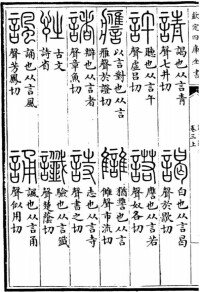 欽定四庫全書
卷三上
請
謁也从言青
聲七井切
謁
白也从言曷
聲於歇切
許
聽也从言午
聲虛呂切
諾
𧭭也从言若
聲奴各切
𧭭
以言對也从言
雁聲於證切
讎
猶𧭭也从言
雔聲市流切
諸
辯也从言者
聲章魚切
詩
志也从言寺
聲書之切
古文
詩省
讖
驗也从言韱
聲楚蔭切
諷
誦也从言風
聲芳鳳切
誦
諷也从言甬
聲似用切